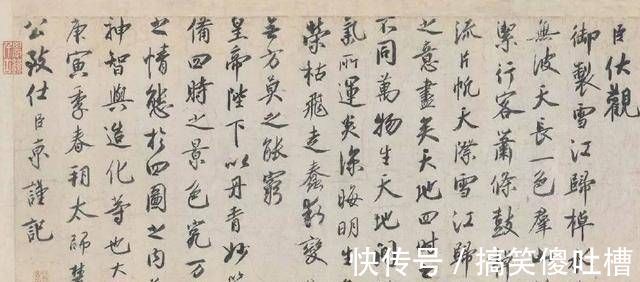 臣伏觀
御製雪江歸棹
無波天長一色羣山
潔行客蕭條鼓棹
流片帆天際雪江歸
之意盡矣天地四時
不同萬物生天地
氣所運炎涼晦明生
榮枯飛走蠢動變
無方莫之能窮
皇帝陛下以丹青妙筆
備四時之景色究万
之情態於四圖之内
神智與造化等也大
庚寅季春朔太師楚
公致仕臣京謹記
快传号／搞笑傻吐槽